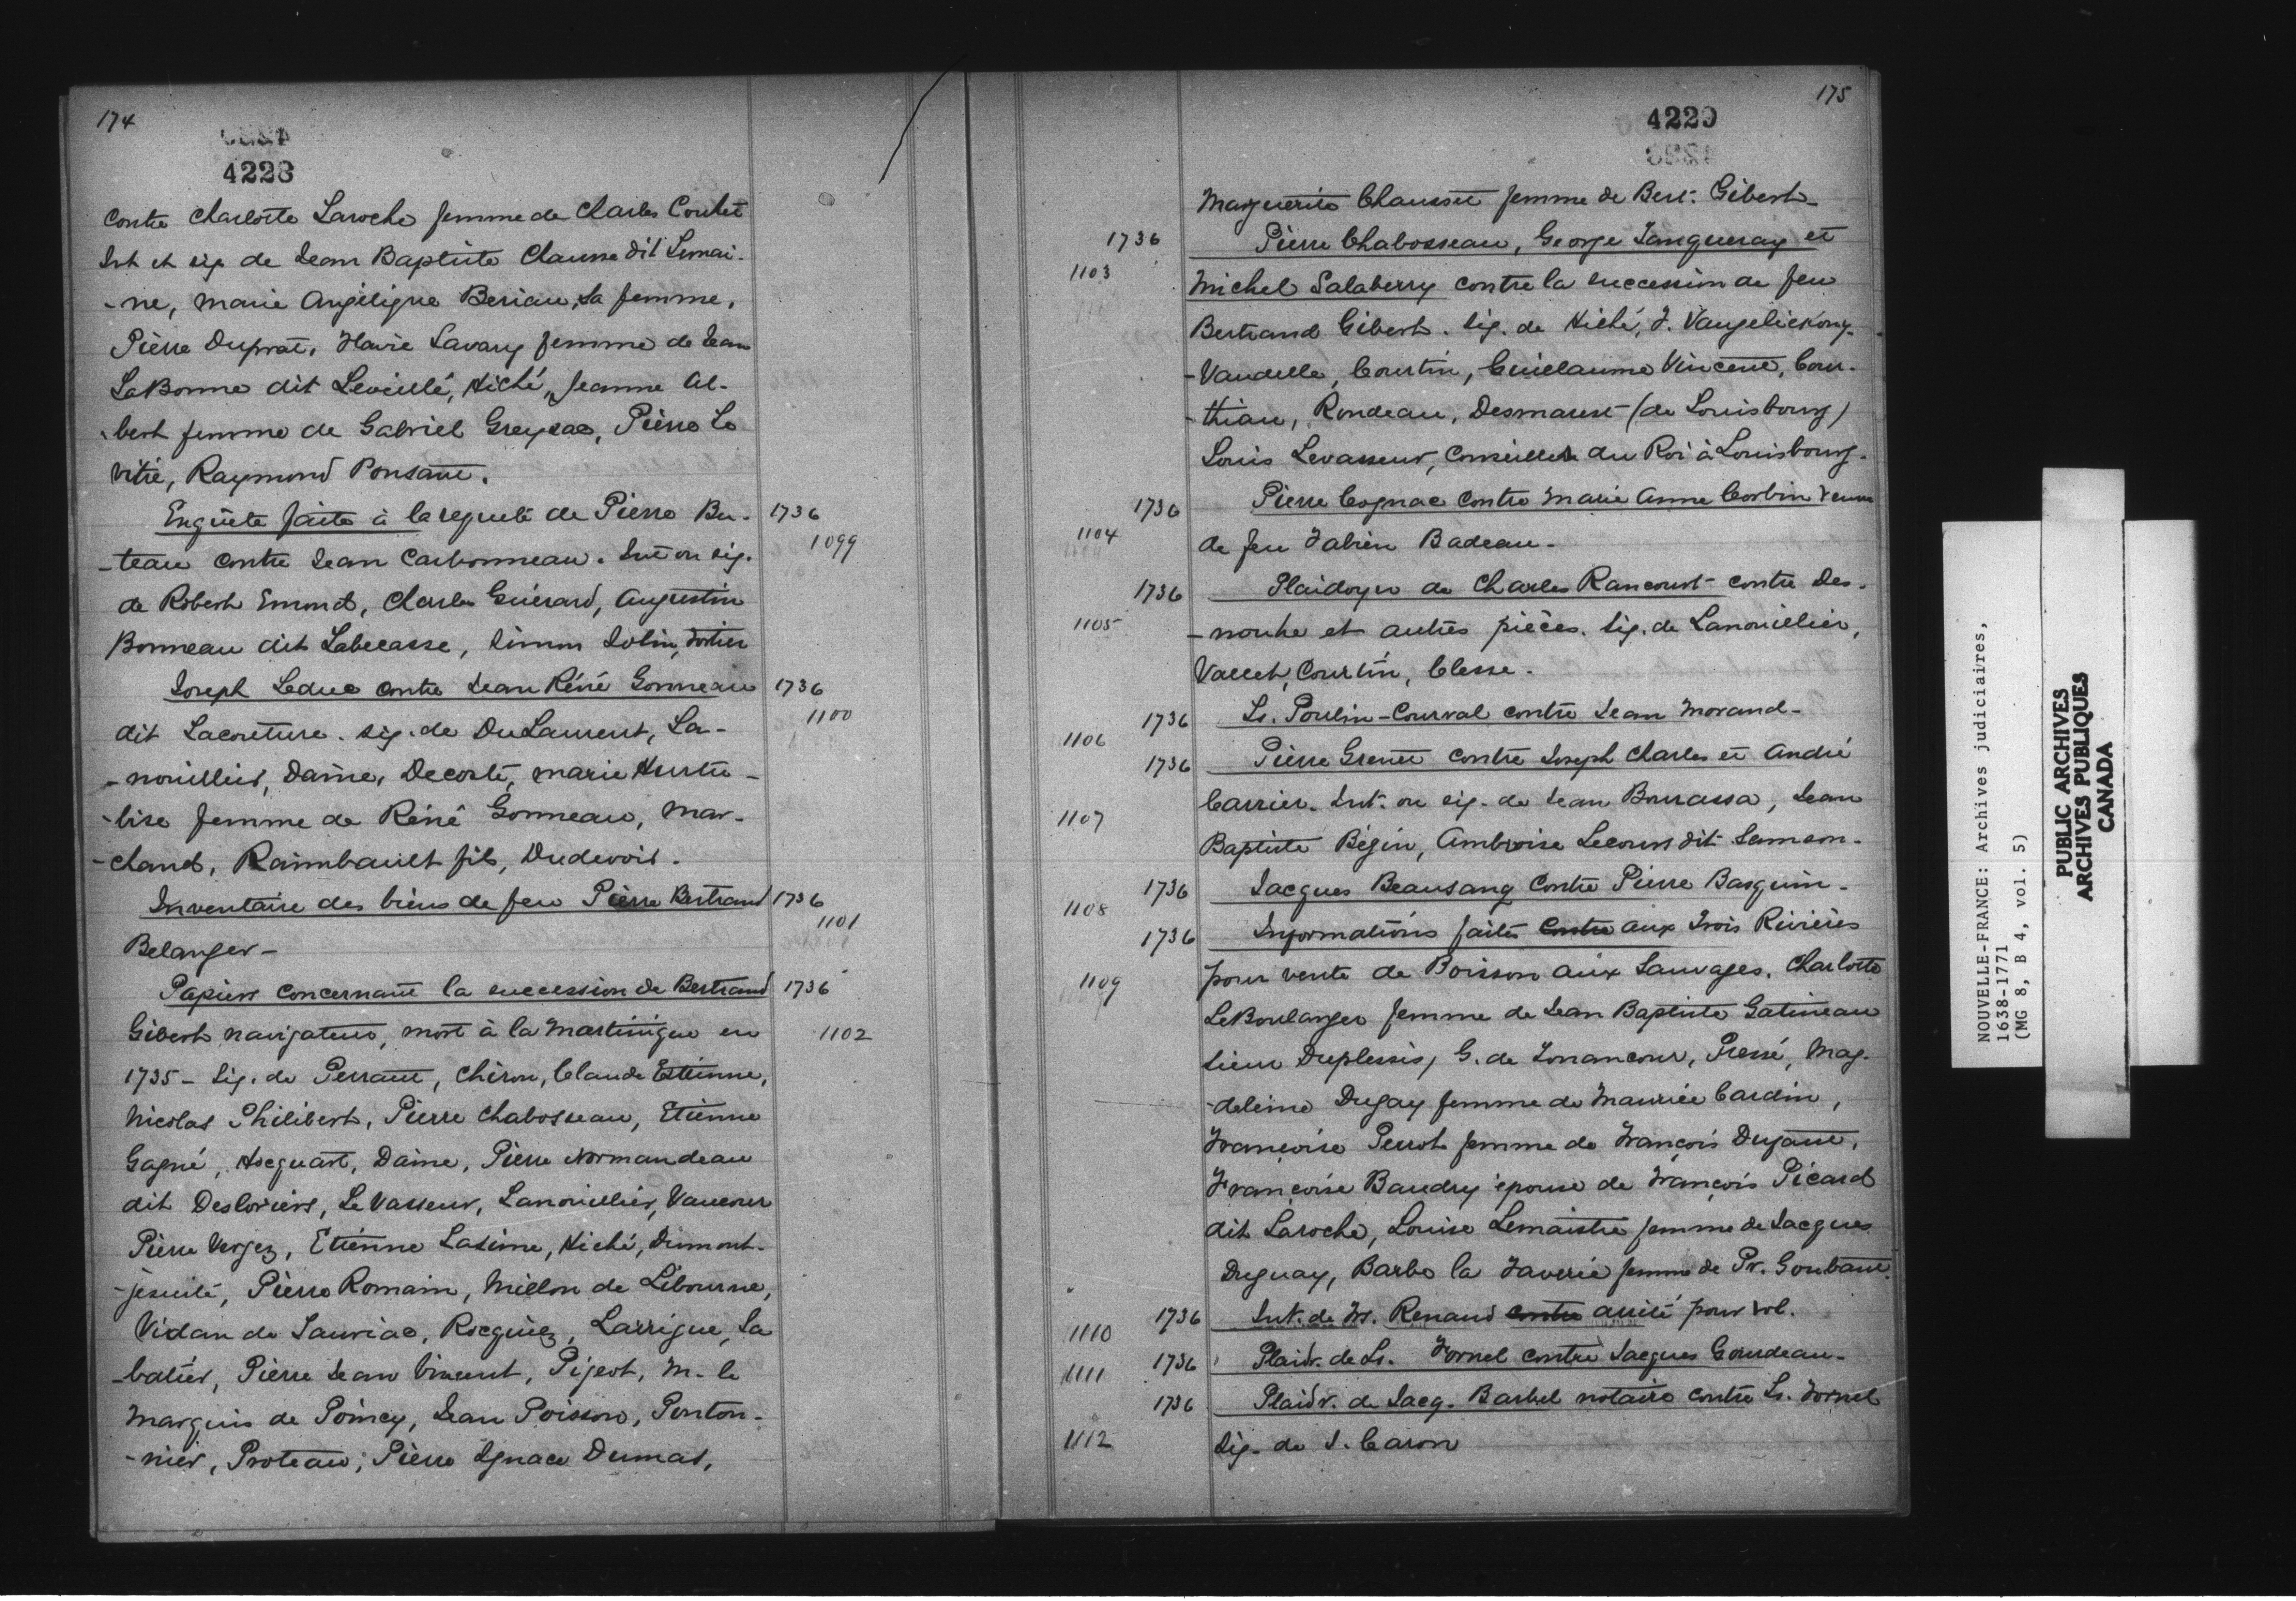 174
4228
Contre Charlotte Laroche femme de Charles Coutet
Int et sig de Jean Baptiste Clausse dit Lemai-
-ne, Marie Angélique Beriau, sa femme,
Pierre Duprat, Marie Savary femme de Jean
LaBonne dit Leveillé, Hiché, Jeanne Al-
-bert femme de Gabriel Greysac, Pierre Le
Vitré, Raymond Ponsant.
Enquête faite à la requête de Pierre Bu- 1736
-teau contre Jean Carbonneau. Int ou sig. 1099
de Robert Emond, Charles Guérard, Augustin
Bonneau dit Labecasse, Simon Jolin, Fortier
Joseph Leduc contre Jean Réné Gonneau 1736
dit Lacouture. sig. de DuLaurent, La- 1100
-nouillier, Daine, Decosté, Marie Hurtu-
-bise femme de Réné Gonneau, Mar-
-chand, Raimbault fils, Dudevoir.
Inventaire des biens de feu Pierre Bertrand 1736
Belanger- 1101
Papiers concernant la succession de Bertrand 1736
Gibert navigateur, mort à la Martinique en 1102
1735 - Sig. de Perrault, Chéron, Claude Etienne,
Nicolas Philibert, Pierre Chabosseau, Etienne
Gagné, Hocquart, Daine, Pierre Normandeau
dit Desloriers, Le Vasseur, Lanouillier, Vaucour
Pierre Vergez, Etienne Lasime, Hiché, Dumont-
-jésuite, Pierre Romain, Millon de Libourne,
Vidan de Sauviac, Rocquiez, Larrigue, Sa
-batier, Pierre Jean Vincent, Pigeot, M. le
Marquis de Poincy, Jean Poisson, Ponton-
-nier, Proteau, Pierre Ignace Dumas,
175
4229
Marguerite Chausset femme de Bert. Gibert-
1736 Pierre Chabosseau, George Tanqueray et
1103 Michel Salaberry contre la succession de feu
Bertrand Gibert. Sig. de Hiché, J. Vangelickong-
-Vandelle, Courtin, Guillaume Vincent, Cour-
-thiau, Rondeau, Desmarest (de Louisbourg)
Louis Levasseur, Conseiller du Roi à Louisbourg.
1736 Pierre Cognac contre Marie Anne Corbin veuve
1104 de feu Fabien Badeau-
1736 Plaidoyer de Charles Rancourt contre Des-
1105 -nouhe et autres pièces. Sig. de Lanouillier,
Vallet, Courtin, Clesse.
1736 Ls. Poulin-Courval contre Jean Morand-
1106
1736 Pierre Grenet contre Joseph Charles et André
Carrier. Int. ou sig. de Jean Bourassa, Jean
1107
Baptiste Bégin, Ambroise Lecours dit Samson.
1736 Jacques Beausang contre Pierre Basquin-
1108
1736 Informations faites contre aux Trois Rivières
1109 pour vente de Boisson aux Sauvages. Charlotte
LeBoulanger femme de Jean Baptiste Gatineau
sieur Duplessis, G. de Tonancour, Pressé, Mag-
-deleine Dugay femme de Maurice Cardin,
Françoise Perrot femme de François Dugast,
Françoise Baudry épouse de François Picard
dit Laroche, Louise Lemaistre femme de Jacques
Duguay, Barbe la Faverie femme de Pr. Goubaut.
1736 Int. de Frs. Renaud contre arrêté pour vol.
1110
1111 1736 Plaidr. de Ls. Fornel contre Jacques Gourdeau-
1736 Plaidr. de Jacq. Barbel notaire contre Ls. Fornel
1112 Sig. de J. Caron
NOUVELLE-FRANCE: Archives judiciaires,
1638-1771
(MG 8, B 4, vol. 5)
PUBLIC ARCHIVES
ARCHIVES PUBLIQUES
CANADA